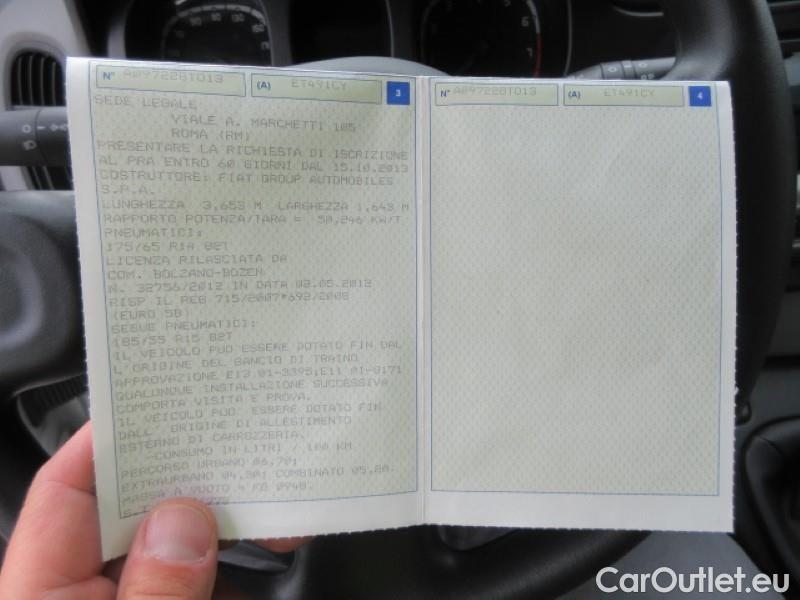 N° A097228TO13 (A) ET491CY 3
SEDE LEGALE
VIALE A. MARCHETTI 105
ROMA (RM)
PRESENTARE LA RICHIESTA DI ISCRIZIONE
AL PRA ENTRO 60 GIORNI DAL 15.10.2013
COSTRUTTORE: FIAT GROUP AUTOMOBILES
S.P.A.
LUNGHEZZA 3,653 M LARGHEZZA 1,643 M
RAPPORTO POTENZA/TARA = 50,246 KW/T
PNEUMATICI:
175/65 R14 82T
LICENZA RILASCIATA DA
COM. BOLZANO-BOZEN
N. 32756/2012 IN DATA 02.05.2012
RISP IL REG 715/2007*692/2008
(EURO 5B)
SEGUE PNEUMATICI:
185/55 R15 82T
IL VEICOLO PUO ESSERE DOTATO FIN DAL
L'ORIGINE DEL GANCIO DI TRAINO
APPROVAZIONE E13 01-3395;E11 01-8171
QUALUNQUE INSTALLAZIONE SUCCESSIVA
COMPORTA VISITA E PROVA.
IL VEICOLO PUO' ESSERE DOTATO FIN
DALL' ORIGINE DI ALLESTIMENTO
ESTERNO DI CARROZZERIA.
-CONSUMO IN LITRI / 100 KM
PERCORSO URBANO 06,70;
EXTRAURBANO 04,30; COMBINATO 05,20.
MASSA A VUOTO = KG 0940.
N° A097228TO13 (A) ET491CY 4
CarOutlet.eu